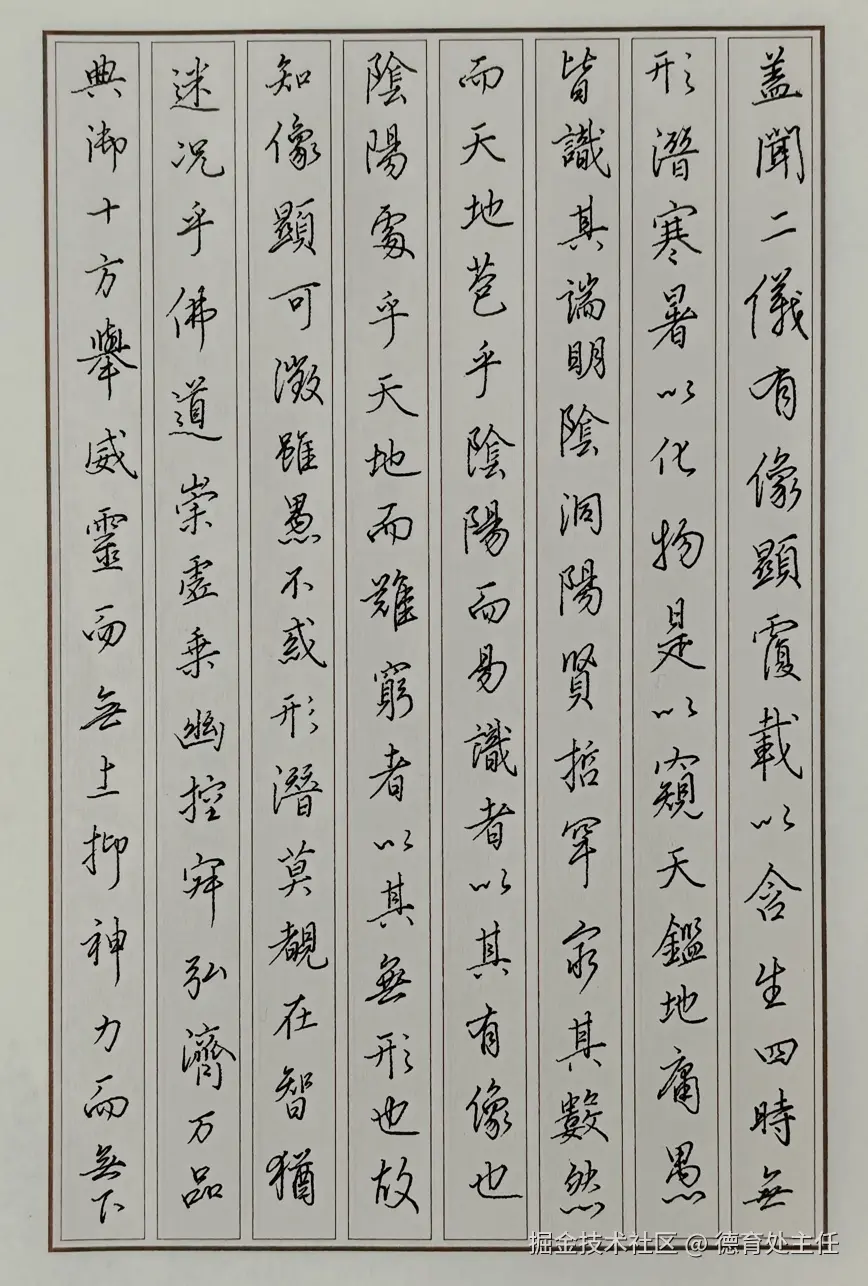 蓋聞二儀有像顯覆載以含生四時無
形潛寒暑以化物是以窺天鑑地庸愚
皆識其端明陰洞陽賢哲罕窮其數然
而天地苞乎陰陽而易識者以其有像也
陰陽處乎天地而難窮者以其無形也故
知像顯可徵雖愚不惑形潛莫覩在智猶
迷況乎佛道崇虛乘幽控寂弘濟万品
典御十方舉威靈而無上抑神力而無下
掘金技术社区 @ 德育处主任